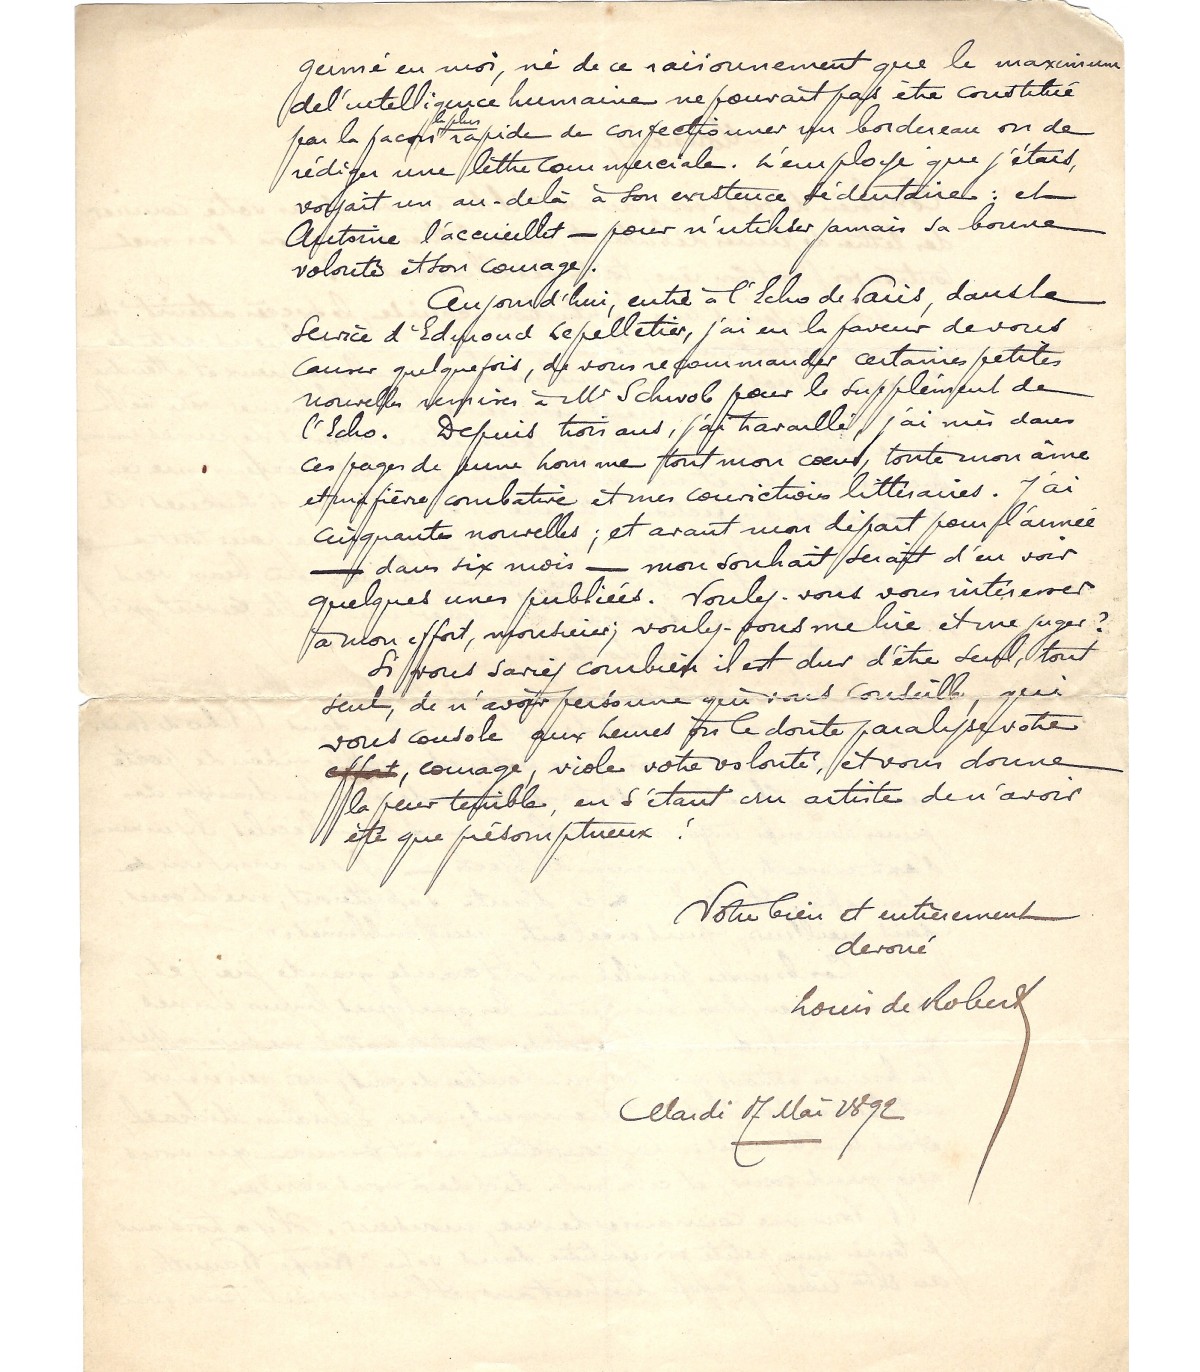 germé en moi, né de ce raisonnement que le maximum
de l'intelligence humaine ne pouvait pas être constitué
par la façon la plus rapide de confectionner un bordereau ou de
rédiger une lettre commerciale. L'employé que j'étais,
voyait un au-delà à son existence sédentaire : et
Antoine l'accueillit — pour n'utiliser jamais sa bonne
volonté et son courage.
Aujourd'hui, entré à l'Echo de Paris, dans le
service d'Edmond Lepelletier, j'ai eu la faveur de vous
causer quelquefois, de vous recommander certaines petites
nouvelles remises à Mr Schwob pour le supplément de
l'Echo. Depuis trois ans, j'ai travaillé, j'ai mis dans
ces pages de jeune homme tout mon cœur, toute mon âme
et ma fièvre combative et mes convictions littéraires. J'ai
cinquante nouvelles ; et avant mon départ pour l'armée
— dans six mois — mon souhait serait d'en voir
quelques unes publiées. Voulez-vous vous intéresser
à mon effort, monsieur; voulez-vous me lire et me juger ?
Si vous saviez combien il est dur d'être seul, tout
seul, de n'avoir personne qui vous conseille, qui
vous console aux heures où le doute paralyse votre
effort, courage, viole votre volonté, et vous donne
la peur terrible, en s'étant cru artiste de n'avoir
été que présomptueux !
Votre bien et entièrement
dévoué
Louis de Robert
Mardi 17 Mai 1892